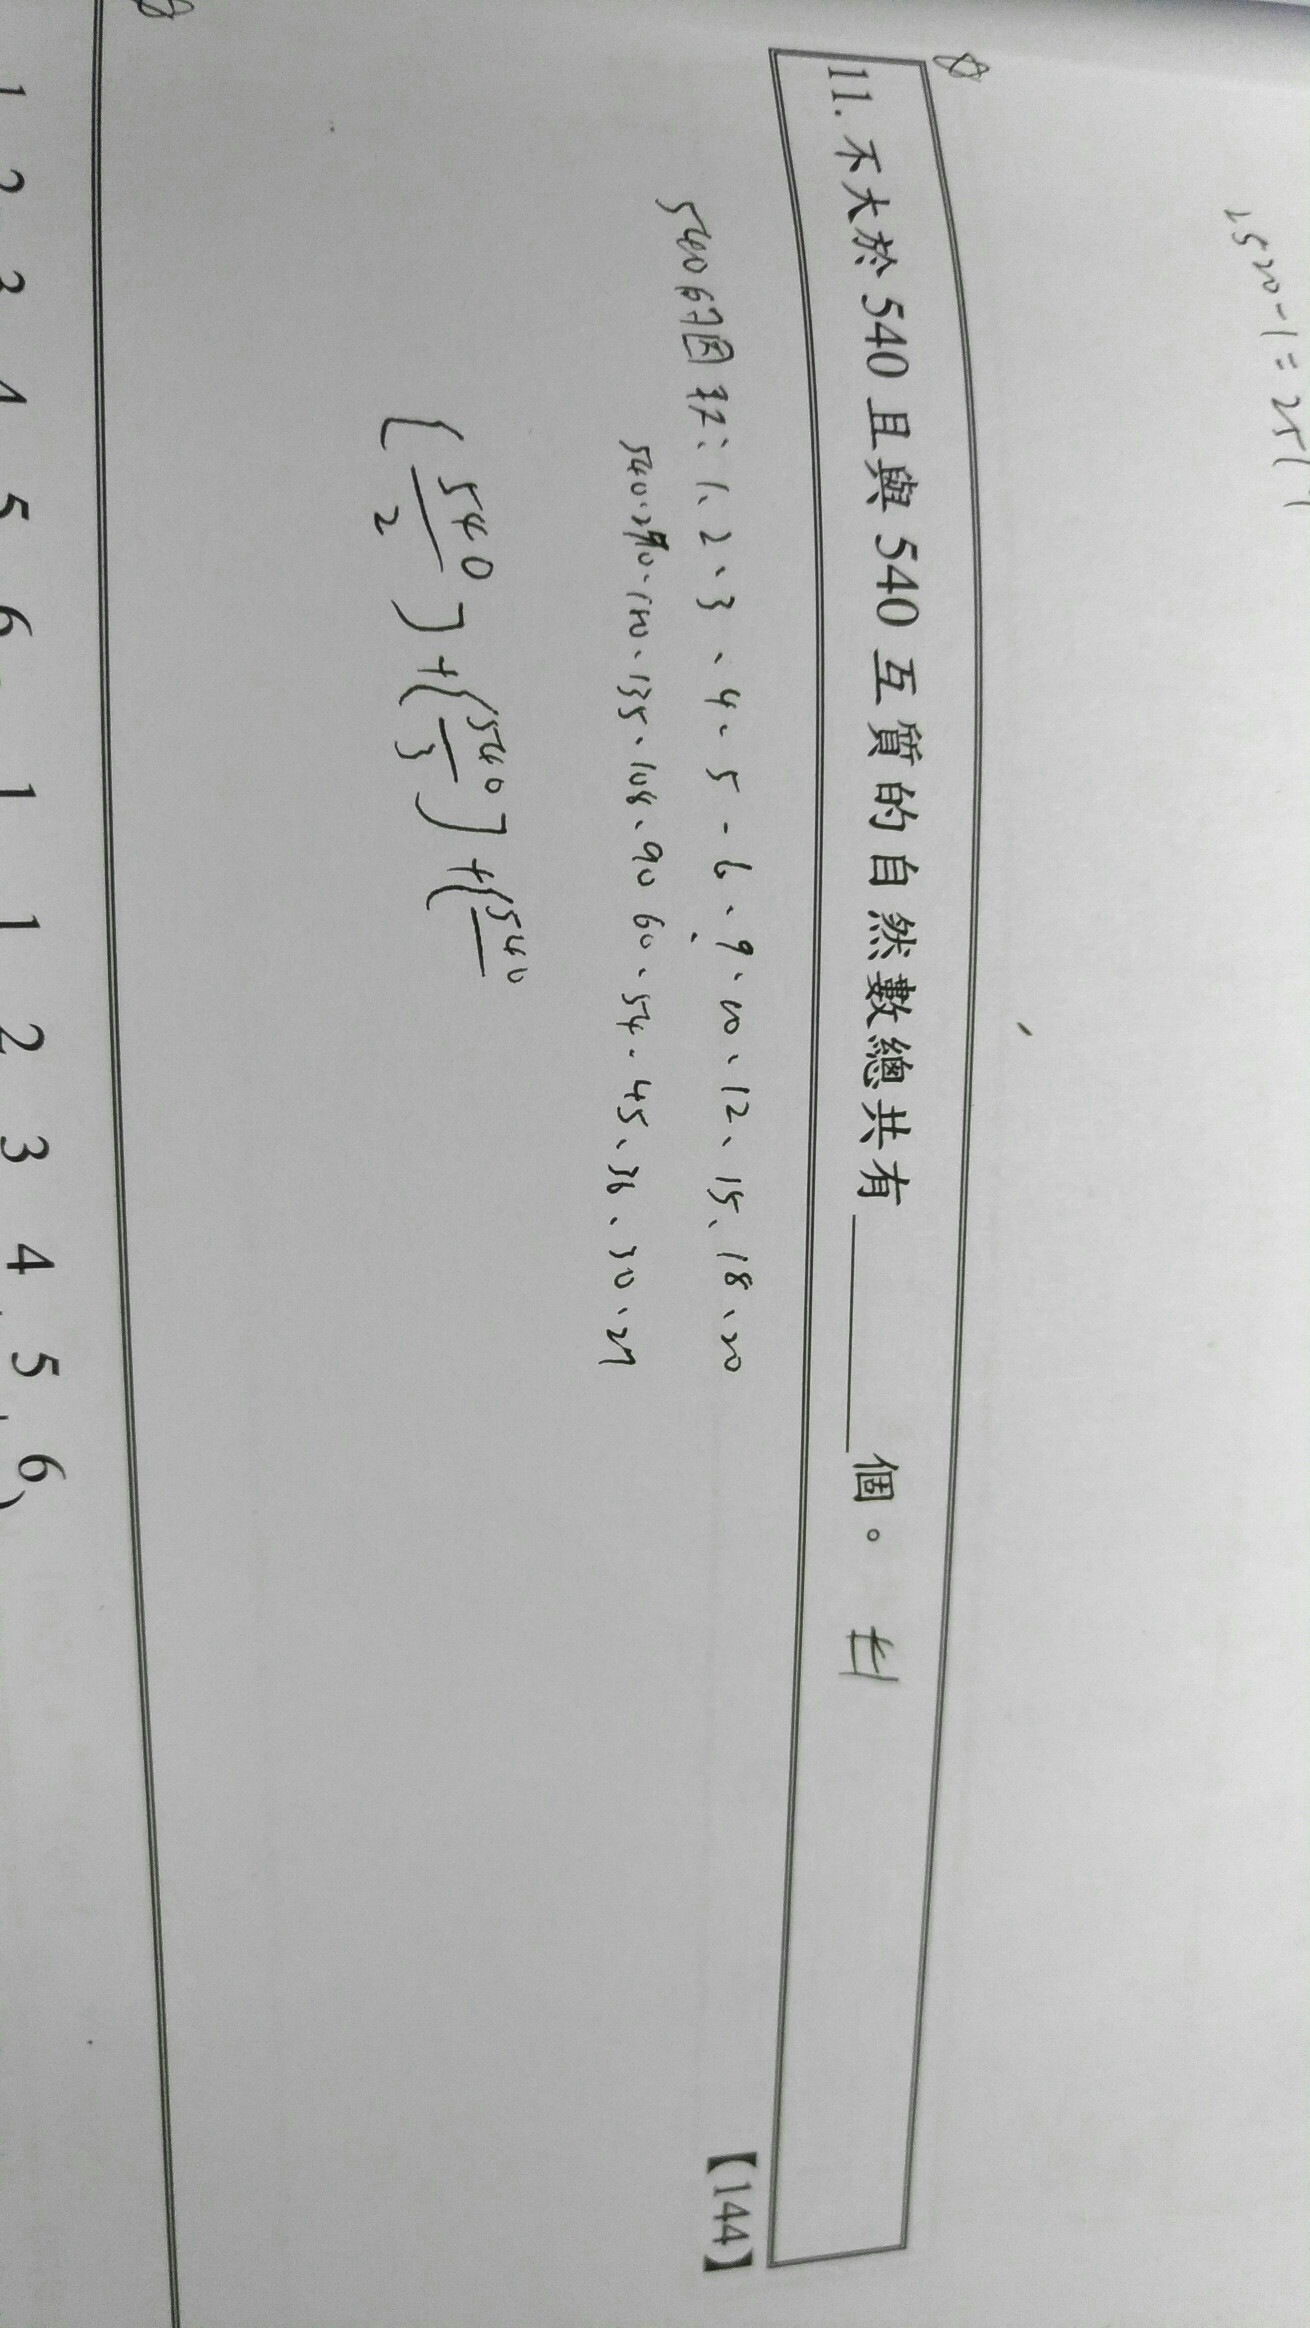 2520-1=2519
11. 不大於 540 且與 540 互質的自然數總共有________個。
540的因數:1、2、3、4、5、6、9、10、12、15、18、20
540、270、180、135、108、90 60、54、45、36、30、27
[540/2]+[540/3]+[540
【144】
1 2 3 4 5 6 1 1 2 3 4 5 6